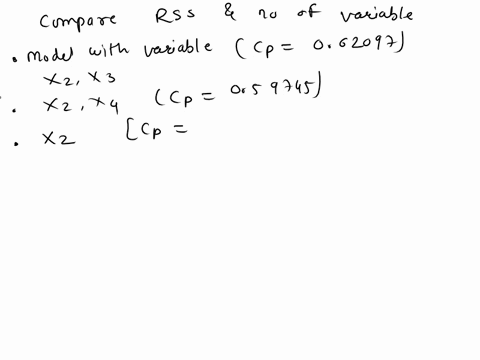 Compare RSS & no of variable
. model with variable (Cp = 0.62097)
x2, x3
. x2, x4 (Cp = 0.59745)
. x2 [Cp =